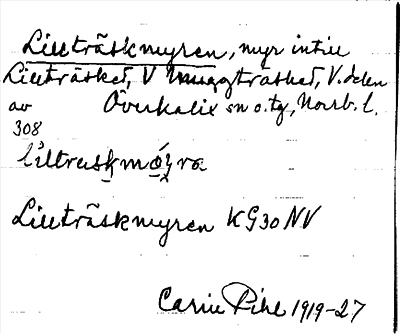 Lillträskmyren, myr intill
Lillträsket, V Muggträsket, V. delen
av Överkalix sn o. tg, Norrb. l.
308
Lillträskmyren KG30 NV
Carin Pihl 1919-27